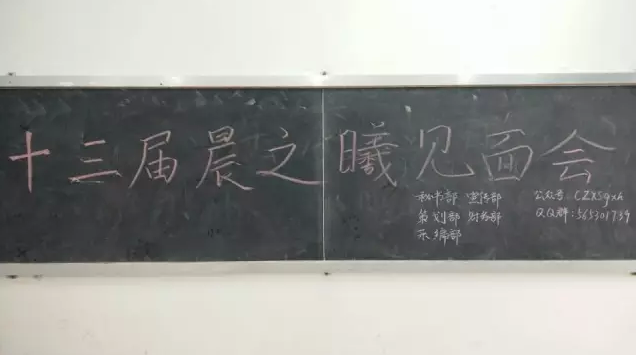 十三届晨之曦见面会
秘书部 宣传部 公众号:CZXSqxh
策划部 财务部 QQ群:565301739
采编部